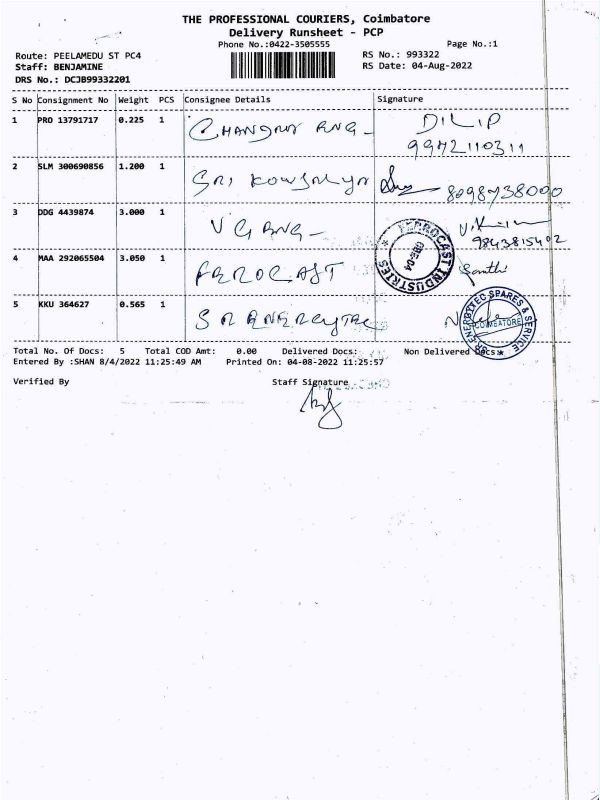 THE PROFESSIONAL COURIERS, Coimbatore
Delivery Runsheet - PCP
Phone No.:0422-3505555 Page No.:1
Route: PEELAMEDU ST PC4 RS No.: 993322
Staff: BENJAMINE RS Date: 04-Aug-2022
DRS No.: DCJB99332201
S No Consignment No Weight PCS Consignee Details Signature
1 PRO 13791717 0.225 1 DILIP
2 SLM 300690856 1.200 1 SRI
3 DDG 4439874 3.000 1 V G ENG
4 MAA 292065504 3.050 1 FEROCAST
FERROCAST INDUSTRIES
CBE-04
5 KKU 364627 0.565 1 S R
SR ENERGYTEC SPARES & SERVICE
COIMBATORE
Total No. Of Docs: 5 Total COD Amt: 0.00 Delivered Docs: Non Delivered Docs:
Entered By :SHAN 8/4/2022 11:25:49 AM Printed On: 04-08-2022 11:25:57
Verified By Staff Signature